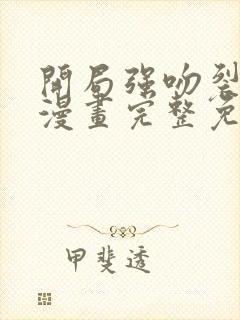 開局强吻裂
漫畫完整免
甲斐透